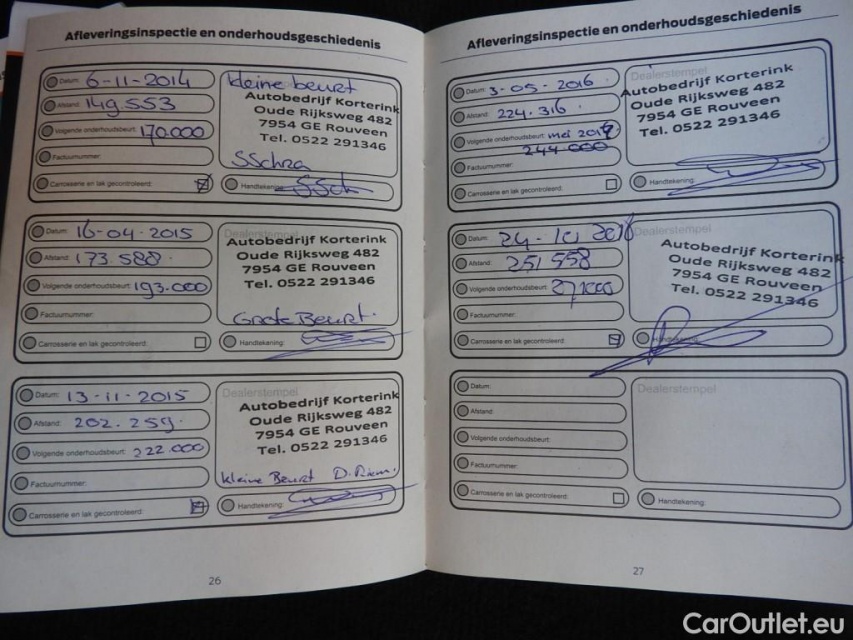 Afleveringsinspectie en onderhoudsgeschiedenis
Datum: 6-11-2014
Afstand: 149.553
Volgende onderhoudsbeurt: 170.000
Factuurnummer:
Carrosserie en lak gecontroleerd:
kleine beurt
Autobedrijf Korterink
Oude Rijksweg 482
7954 GE Rouveen
Tel. 0522 291346
Handtekening:
Datum: 16-04-2015
Afstand: 173.588.
Volgende onderhoudsbeurt: 193.000
Factuurnummer:
Carrosserie en lak gecontroleerd:
Dealerstempel
Autobedrijf Korterink
Oude Rijksweg 482
7954 GE Rouveen
Tel. 0522 291346
Grote Beurt.
Handtekening:
Datum: 13-11-2015
Afstand: 202.259.
Volgende onderhoudsbeurt: 222.000
Factuurnummer:
Carrosserie en lak gecontroleerd:
Dealerstempel
Autobedrijf Korterink
Oude Rijksweg 482
7954 GE Rouveen
Tel. 0522 291346
kleine Beurt
Handtekening:
26
Afleveringsinspectie en onderhoudsgeschiedenis
Datum: 3-05-2016
Afstand: 224.316.
Volgende onderhoudsbeurt: mei 2017
244.000
Factuurnummer:
Carrosserie en lak gecontroleerd:
Dealerstempel
Autobedrijf Korterink
Oude Rijksweg 482
7954 GE Rouveen
Tel. 0522 291346
Handtekening:
Datum: 24-10 2016
Afstand: 251 558
Volgende onderhoudsbeurt: 271000
Factuurnummer:
Carrosserie en lak gecontroleerd:
Dealerstempel
Autobedrijf Korterink
Oude Rijksweg 482
7954 GE Rouveen
Tel. 0522 291346
Handtekening:
Datum:
Afstand:
Volgende onderhoudsbeurt:
Factuurnummer:
Carrosserie en lak gecontroleerd:
Dealerstempel
Handtekening:
27
CarOutlet.eu